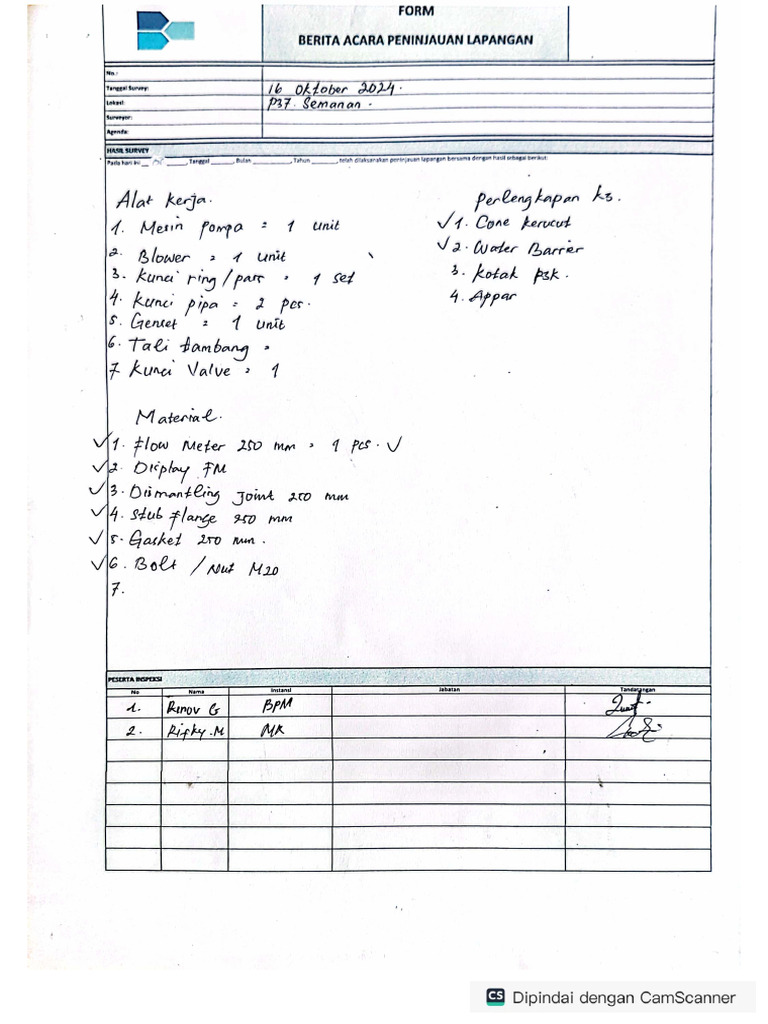 FORM
BERITA ACARA PENINJAUAN LAPANGAN
No.:
Tanggal Survey: 16 Oktober 2024.
Lokasi: P37. Semanan.
Surveyor:
Agenda:
HASIL SURVEY
Pada hari ini ____, Tanggal ____, Bulan ____, Tahun ____, telah dilaksanakan peninjauan lapangan bersama dengan hasil sebagai berikut:
Alat kerja.
1. Mesin Pompa = 1 unit
2. Blower = 1 unit
3. Kunci ring/pass = 1 set
4. Kunci pipa = 2 pcs.
5. Genset = 1 unit
6. Tali tambang =
7 Kunci Valve = 1
Perlengkapan K3.
✓ 1. Cone kerucut
✓ 2. Water Barrier
3. Kotak P3K.
4. Appar
Material.
✓ 1. Flow Meter 250 mm = 1 pcs. ✓
✓ 2. Display FM
✓ 3. Dismantling Joint 250 mm
✓ 4. Stub flange 250 mm
✓ 5. Gasket 250 mm.
✓ 6. Bolt / Nut M20
7.
PESERTA INSPEKSI
No Nama Instansi Jabatan Tandatangan
1. Rinov G BPM
2. Rifky.M MK
CS Dipindai dengan CamScanner